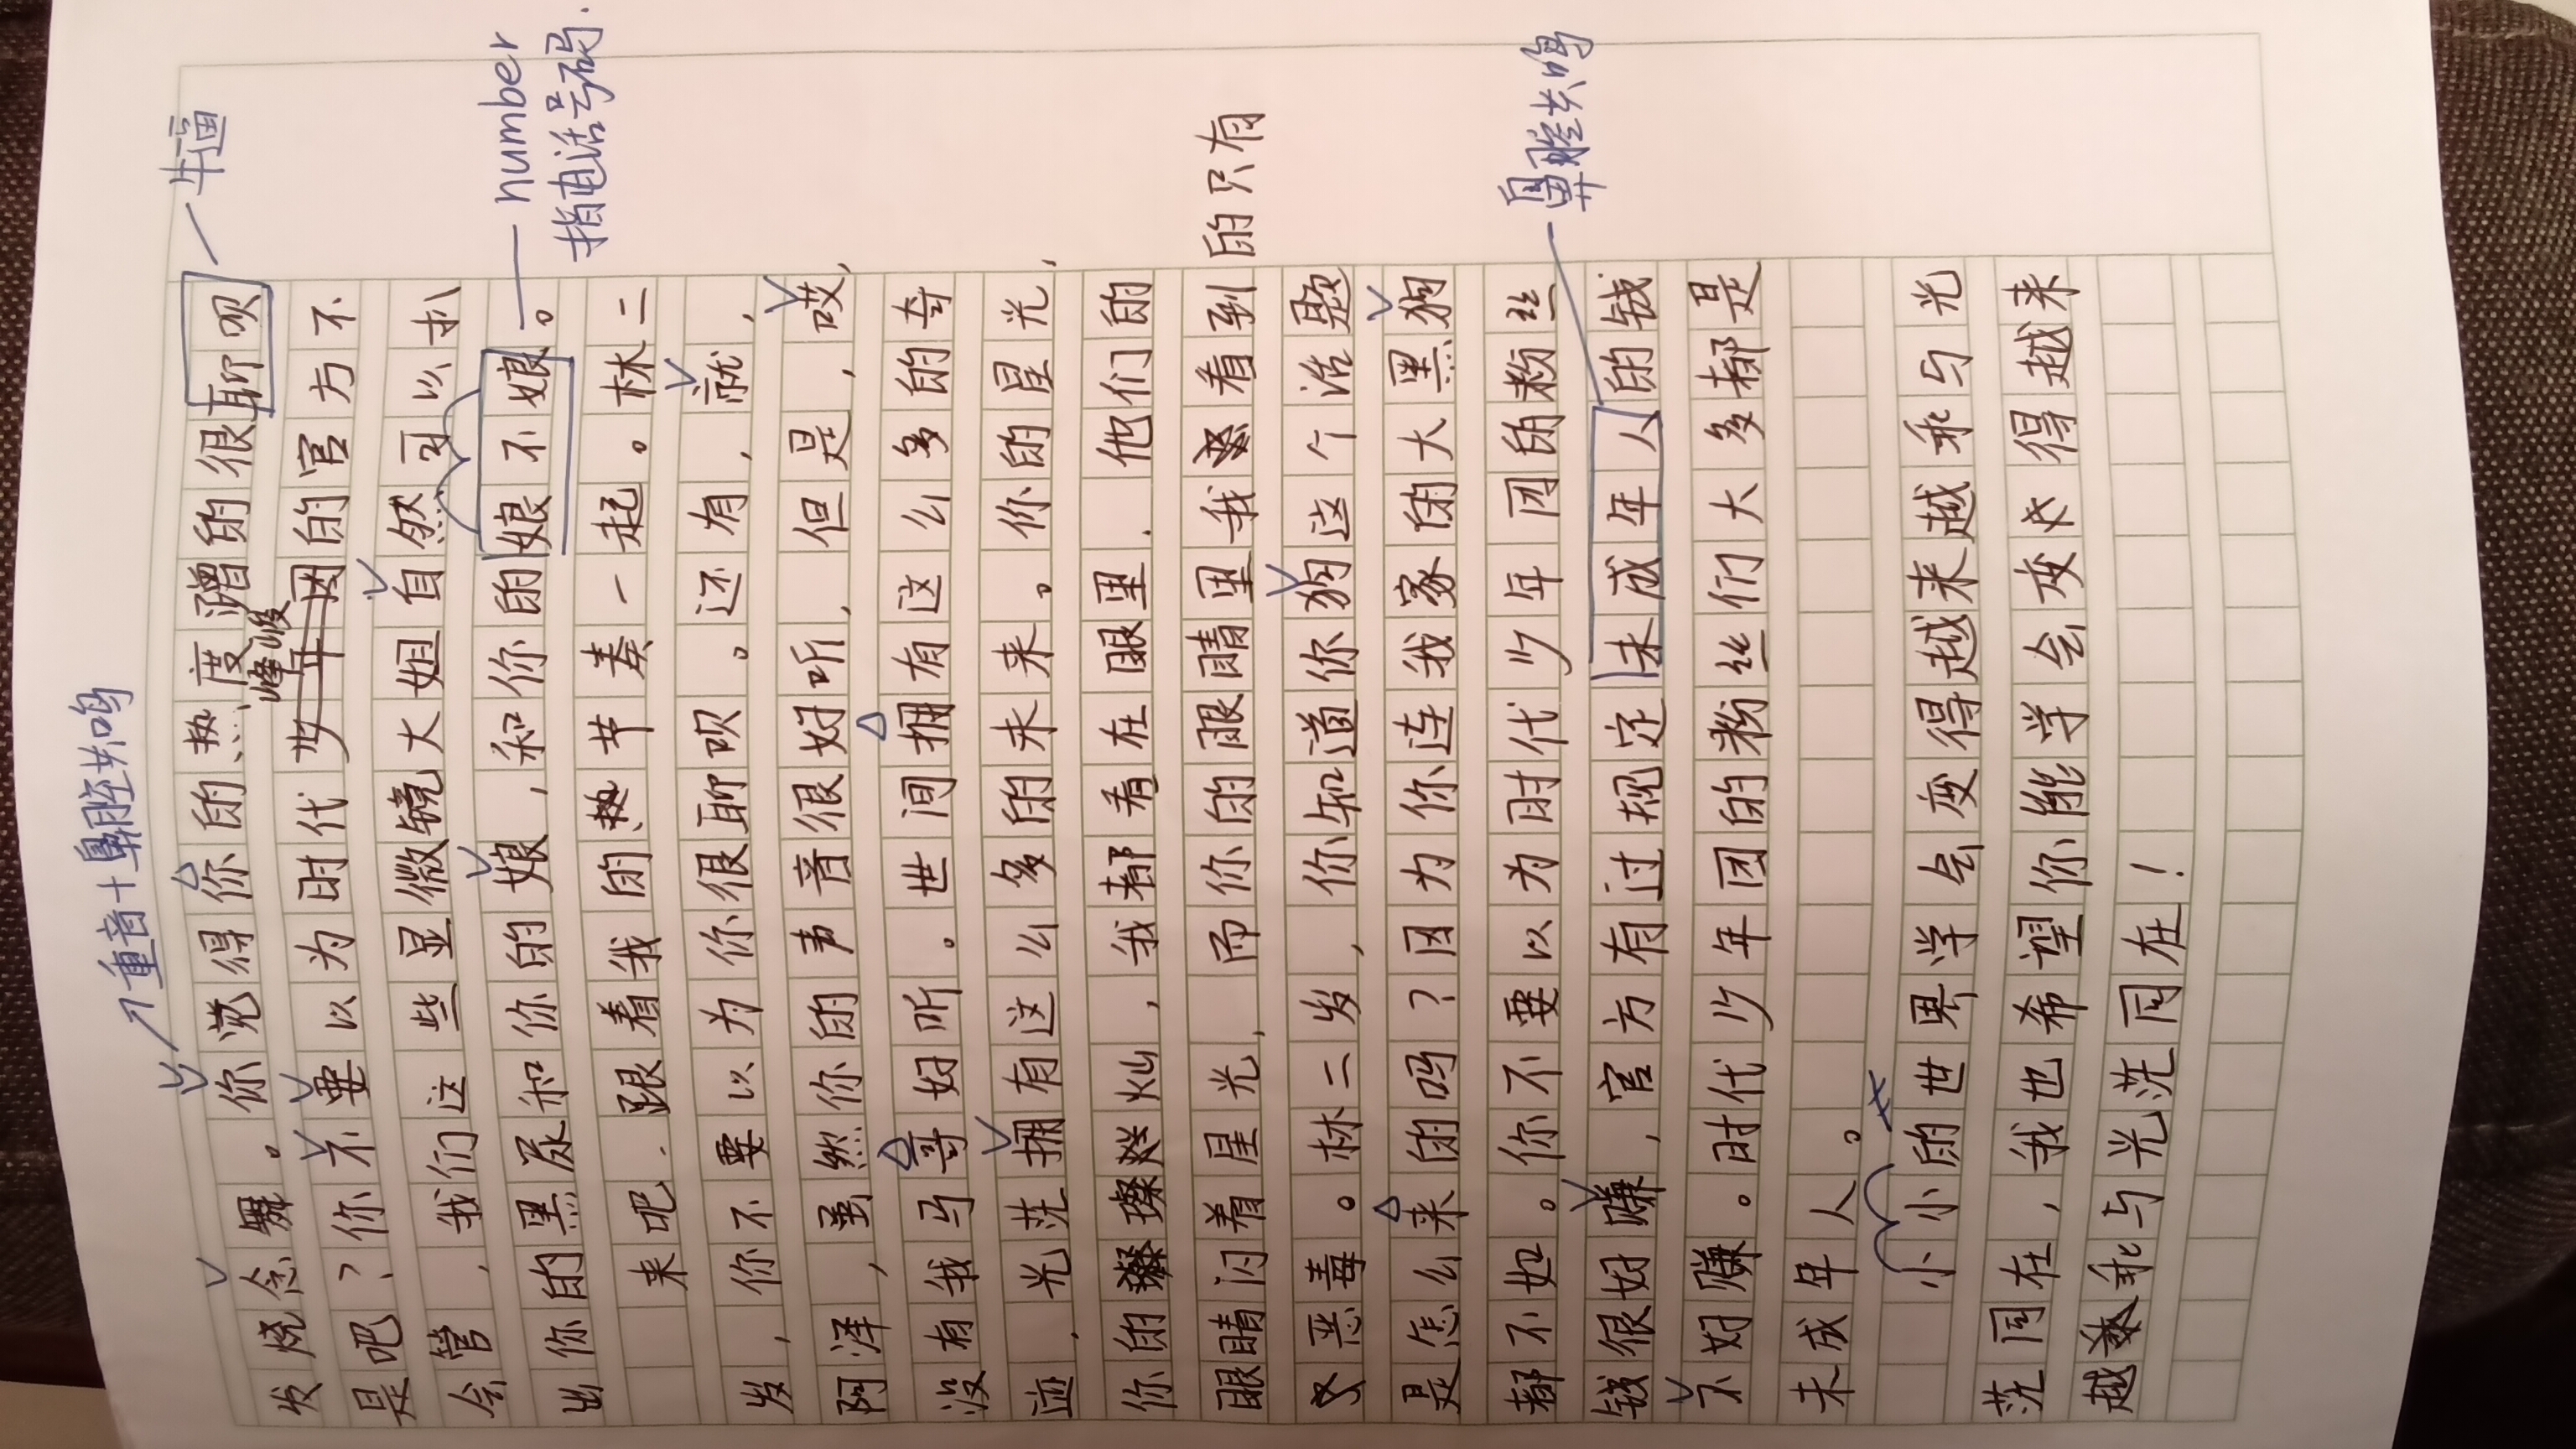 ↗重音+鼻腔共鸣
发烧念舞。你觉得你的热度蹭的很聊呗 — 牛逼
是吧?你不要以为时代峰峻的官方不
会管,我们这些显微镜大姐自然可以扒
出你的黑尿和你的娘,和你的娘不娘。 — number
指电话号码.
来吧.跟着我的热节奏一起。林二
发,你不要以为你很聊呗。还有,就,
阿泽,虽然你的声音很好听,但是,哎,
没有我马哥好听。世间拥有这么多的奇
迹,光茫拥有这么多的未来。你的星光,
你的璨灿,我都看在眼里.他们的
眼睛闪着星光,而你的眼睛里我看到的只有
恶毒。林二发,你知道你狗这个活题
是怎么来的吗?因为你连我家的大黑狗
都不如。你不要以为时代少年团的粉丝
钱很好赚,官方有过规定未成年人的钱 — 鼻腔共鸣
不好赚。时代少年团的粉丝们大多都是
未成年人。
小小的世界学会变得越来越乖与光
茫同在,我也希望你能学会变得越来
越乖与光茫同在!